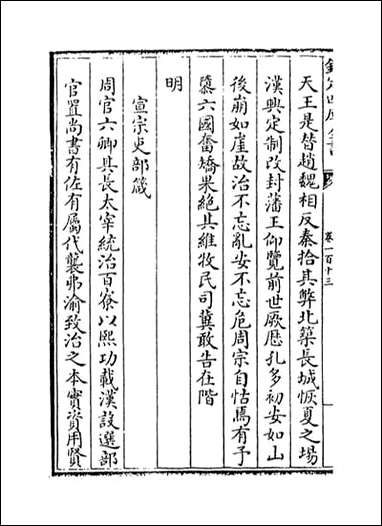 欽定四庫全書
卷一百十三
天王是替趙魏相反秦拾其弊北築長城恢夏之場
漢興定制改封藩王仰覽前世厥歴孔多初安如山
後崩如崖故治不忘亂安不忘危周宗自怙焉有予
隳六國奮矯果絶其維牧民司冀敢告在階
明
宣宗吏部箴
周官六卿其長太宰統治百寮以熙功載漢設選部
官置尚書有佐有屬代襲弗渝致治之本實資用賢